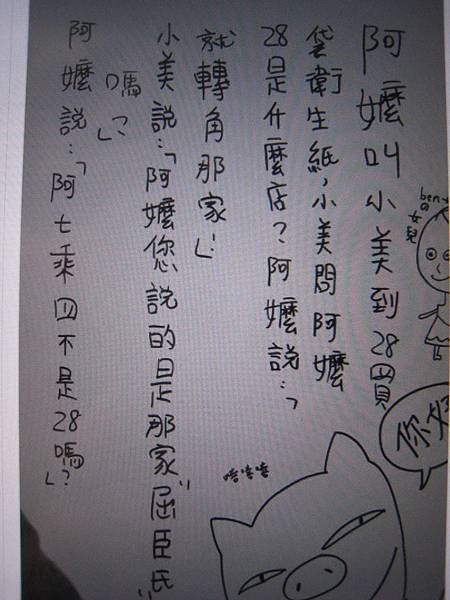 阿嬤叫小美到28買
袋衛生紙,小美問阿嬤
28是什麼店?阿嬤說:「
就轉角那家」
小美說:「阿嬤您說的是那家"屈臣氏"
嗎?」
阿嬤說:「阿七乘四不是28嗎?」
ben
の女兒
你好